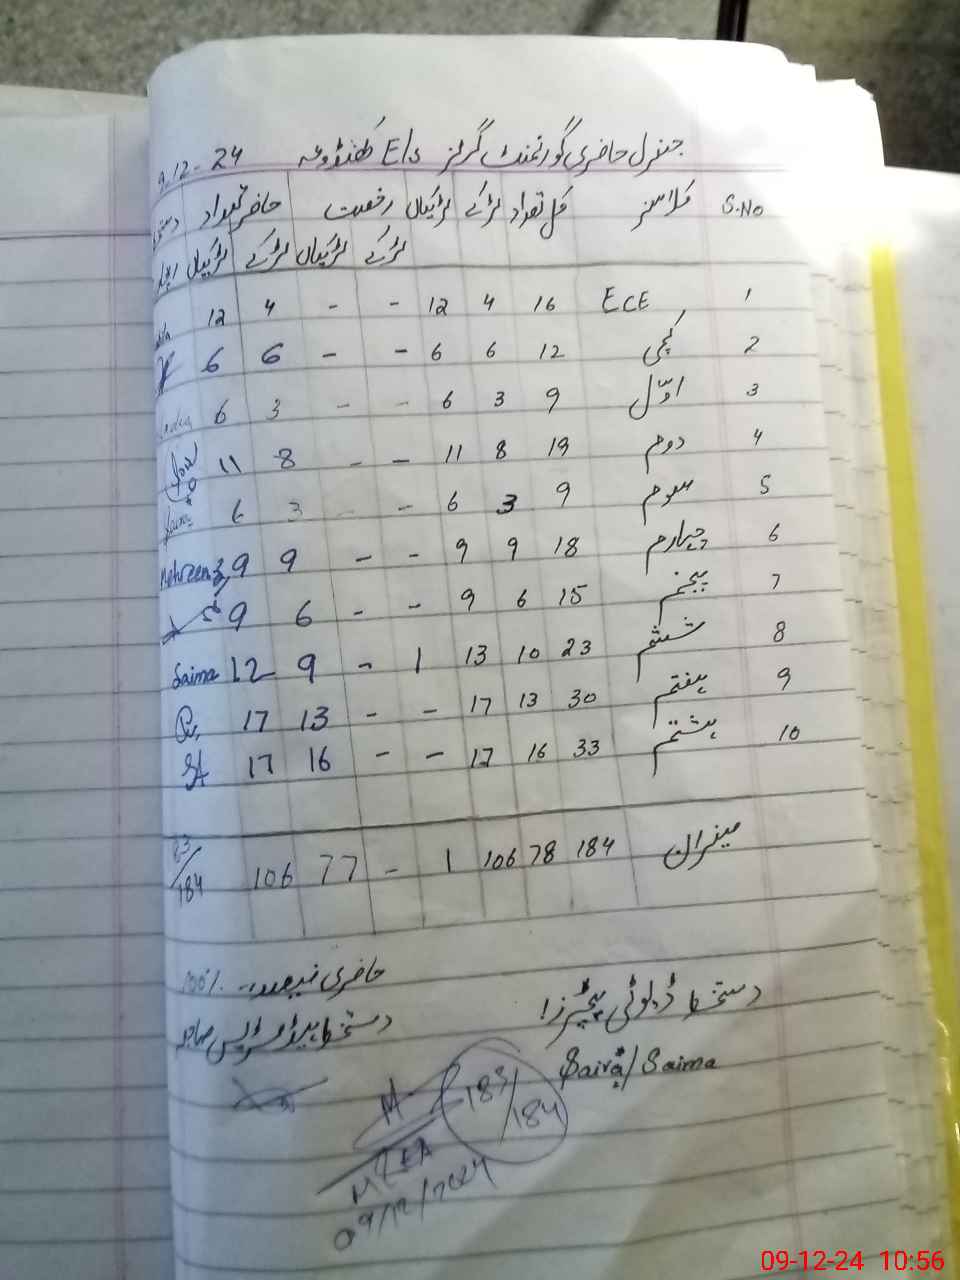 جنرل حاضری گورنمنٹ گرلز E/s کھنڈوعہ 9.12-24
S.No کلاسز کل تعداد لڑکے لڑکیاں رخصت حاضر تعداد
لڑکے لڑکیاں لڑکے لڑکیاں
1 ECE 16 4 12 - - 4 12
2 کچی 12 6 6 - - 6 6
3 اوّل 9 3 6 - - 3 6
4 دوم 19 8 11 - - 8 11
5 سوم 9 3 6 - - 3 6
6 چہارم 18 9 9 - - 9 9 Mehreen
7 پنجم 15 6 9 - - 6 9
8 ششم 23 10 13 1 - 9 12 Saima
9 ہفتم 30 13 17 - - 13 17
10 ہشتم 33 16 17 - - 16 17 SA
میزان 184 78 106 1 - 77 106 183/184
حاضری فیصد 100%
دستخط ڈیوٹی ٹیچرز دستخط ہیڈ مسٹریس صاحبہ
Saira/Saima
183/184
MEA
09/12/2024
09-12-24 10:56